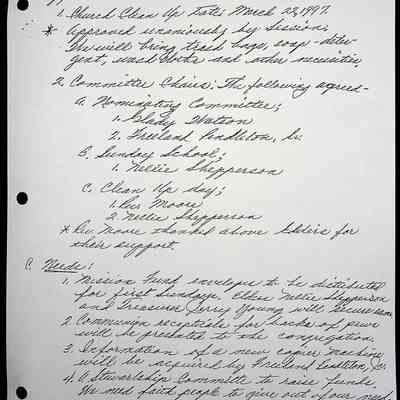 1. Church Clean Up Date: March 22, 1997.
* Approved unaniously by Session.
We will bring trash bags, soap-deter-
gent, wash cloths and other necessities.
2. Committee Chairs: The following agreed-
A. Nominating Committee;
1. Glady Watson
2. Freeland Pendleton, Sr.
B. Sunday School;
1. Nellie Shepperson
C. Clean Up day;
1. Rev Moore
2. Nellie Shepperson
* Rev. Moore thanked above Elders for
their support.
C. Needs:
1. Mission Fund envelopes to be distributed
for first Sundays. Elder Nellie Shepperson
and Treasurer Jerry Young will secure
2. Communion receptacle for backs of pews
will be presented to the congregation.
3. Information of a new copier machine
will be acquired by Freeland Pendleton, Sr.
4. A Stewardship Committe to raise funds.
We need faith people to give out of our need